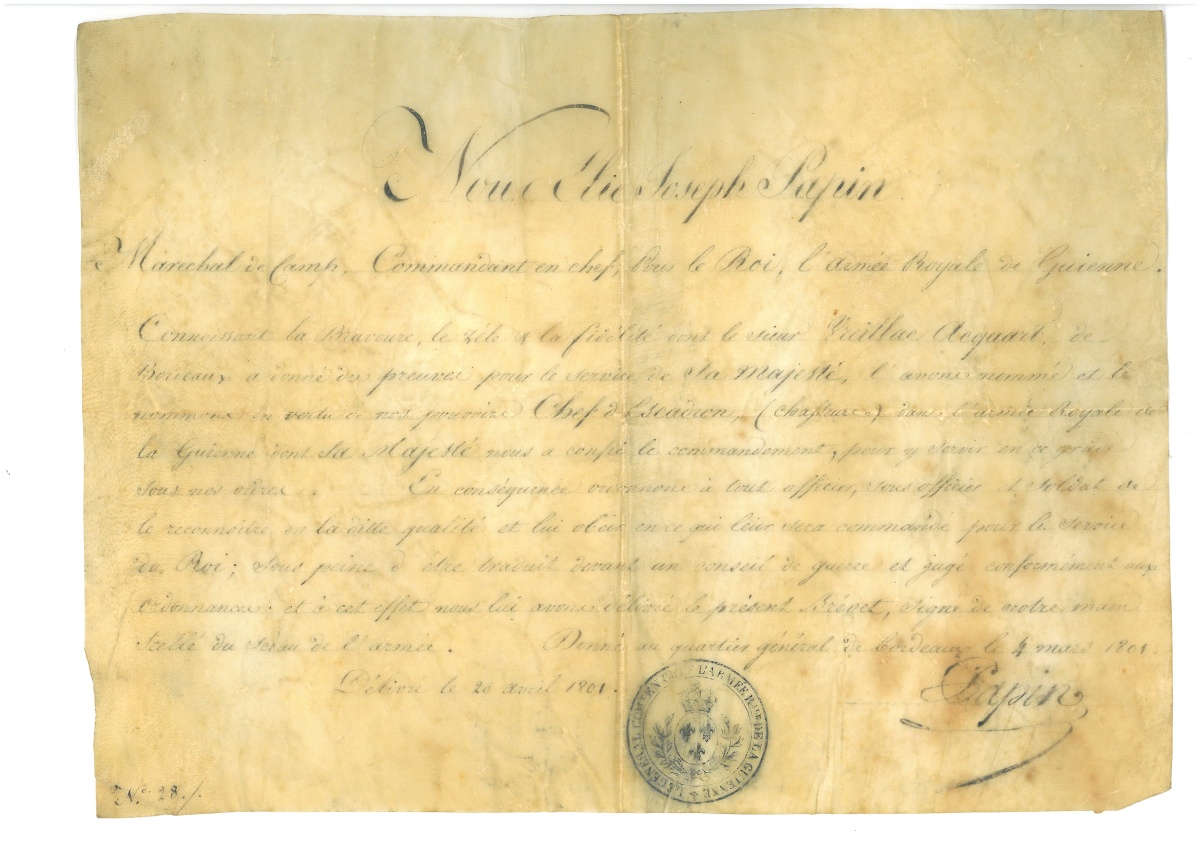 Nous Élie Joseph Papin
Maréchal de Camp, Commandant en chef, Pour le Roi, l'armée Royale de Guienne.
Connoissant la Bravoure, le zèle & la fidélité dont le sieur Acquart, de
Bordeaux a donné des preuves pour le service de Sa Majesté, l'avons nommé et le
nommons en vertu de nos pouvoirs Chef d'Escadron, (chasseurs) dans l'armée Royale de
la Guienne dont Sa Majesté nous a confié le commandement, pour y servir en ce grade
sous nos ordres. En conséquence ordonnons à tout officier, sous officier et soldat de
le reconnoitre en la ditte qualité et lui obéir en ce qui leur sera commandé pour le service
du Roi; sous peine d'être traduit devant un conseil de guerre et jugé conformément aux
ordonnances; et à cet effet nous lui avons délivré le présent Brévet, signé de notre main
scellé du sceau de l'armée. Donné au quartier général de Bordeaux le 4 mars 1801.
Délivré le 26 avril 1801.
Papin
LE GENERAL COMT EN CHEF L'ARMÉE RYLE DE LA GUYENNE
N° 28./.